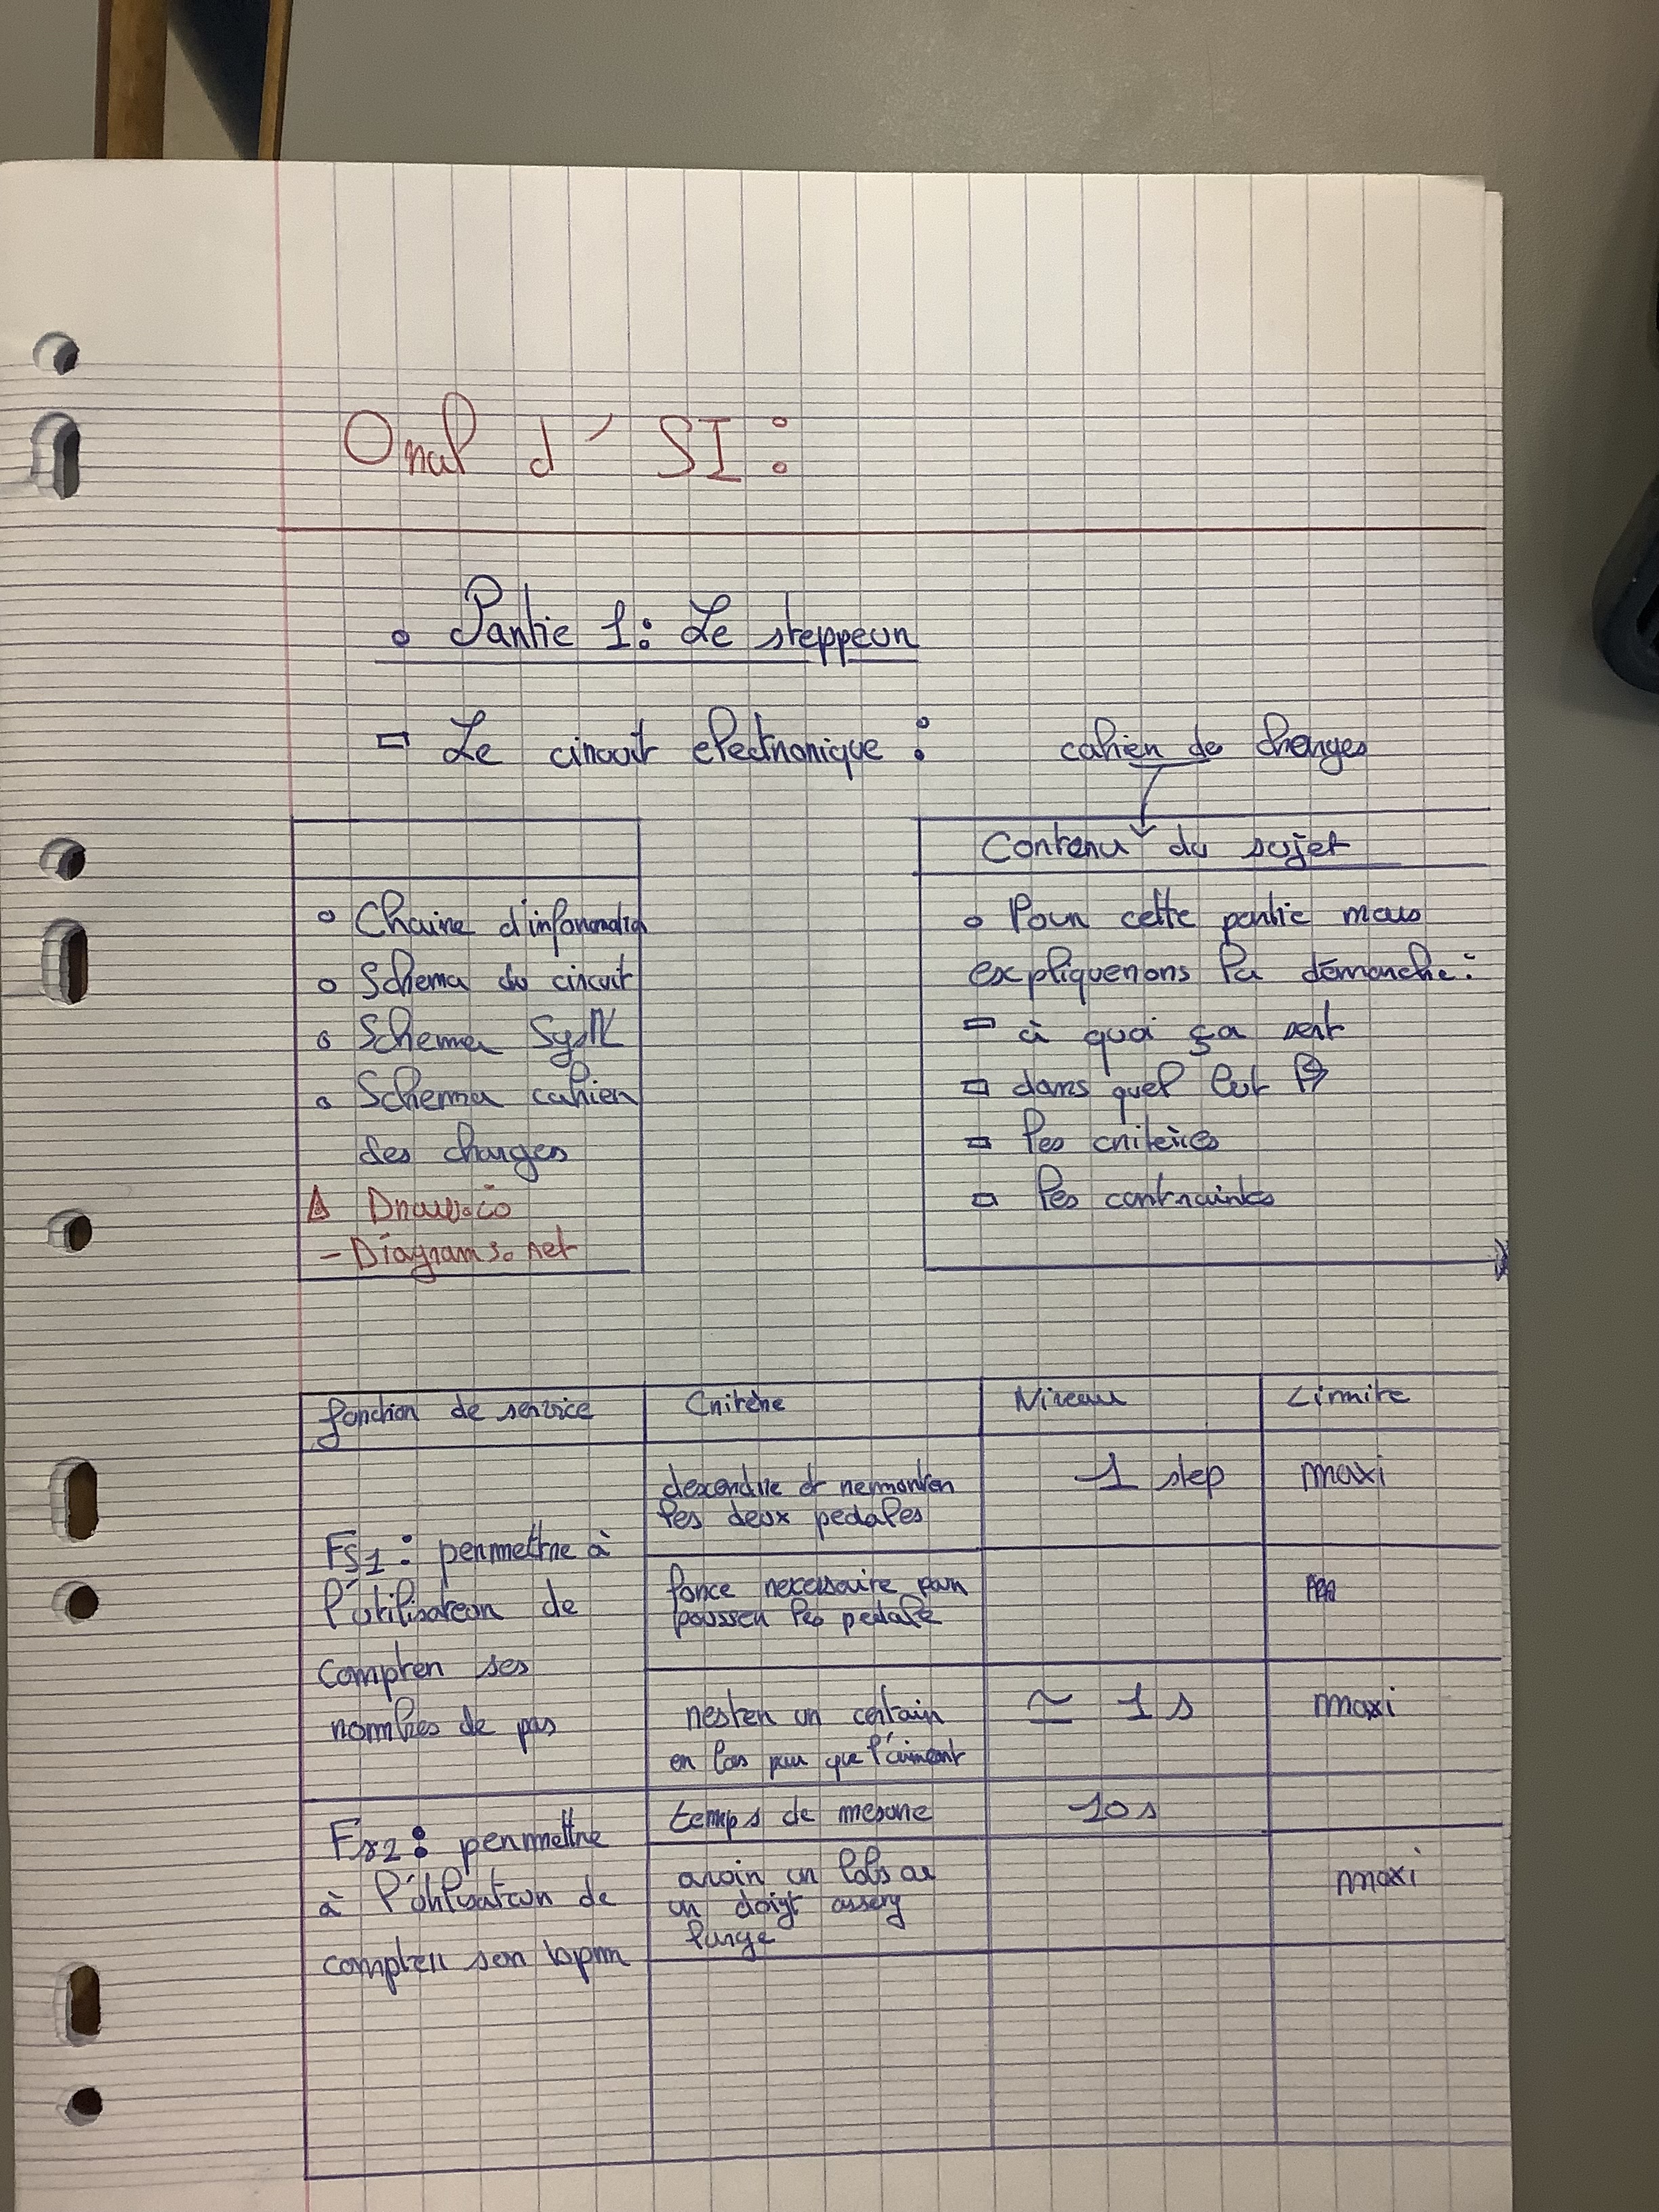 Oral d'SI :
Partie 1 : Le steppeur
Le circuit electronique :
cahier de charges
Chaine d'information
Schema du circuit
Schema
Schema cahier
des charges
Draw.io
- Diagrams.net
Contenu du sujet
Pour cette partie nous
expliquerons la démarche :
à quoi ça sert
dans quel but
les critères
les contraintes
fonction de service
Critère
Niveau
Limite
FS1 : permettre à
l'utilisateur de
compter ses
nombres de pas
descendre et remonter
les deux pedales
1 step
maxi
force necessaire pour
pousser les pedale
rester un certain
en bas pour que l'aimant
≃ 1 s
maxi
FS2 : permettre
à l'utilisateur de
compter son bpm
temps de mesure
10 s
avoir un
un doigt assez
large
maxi